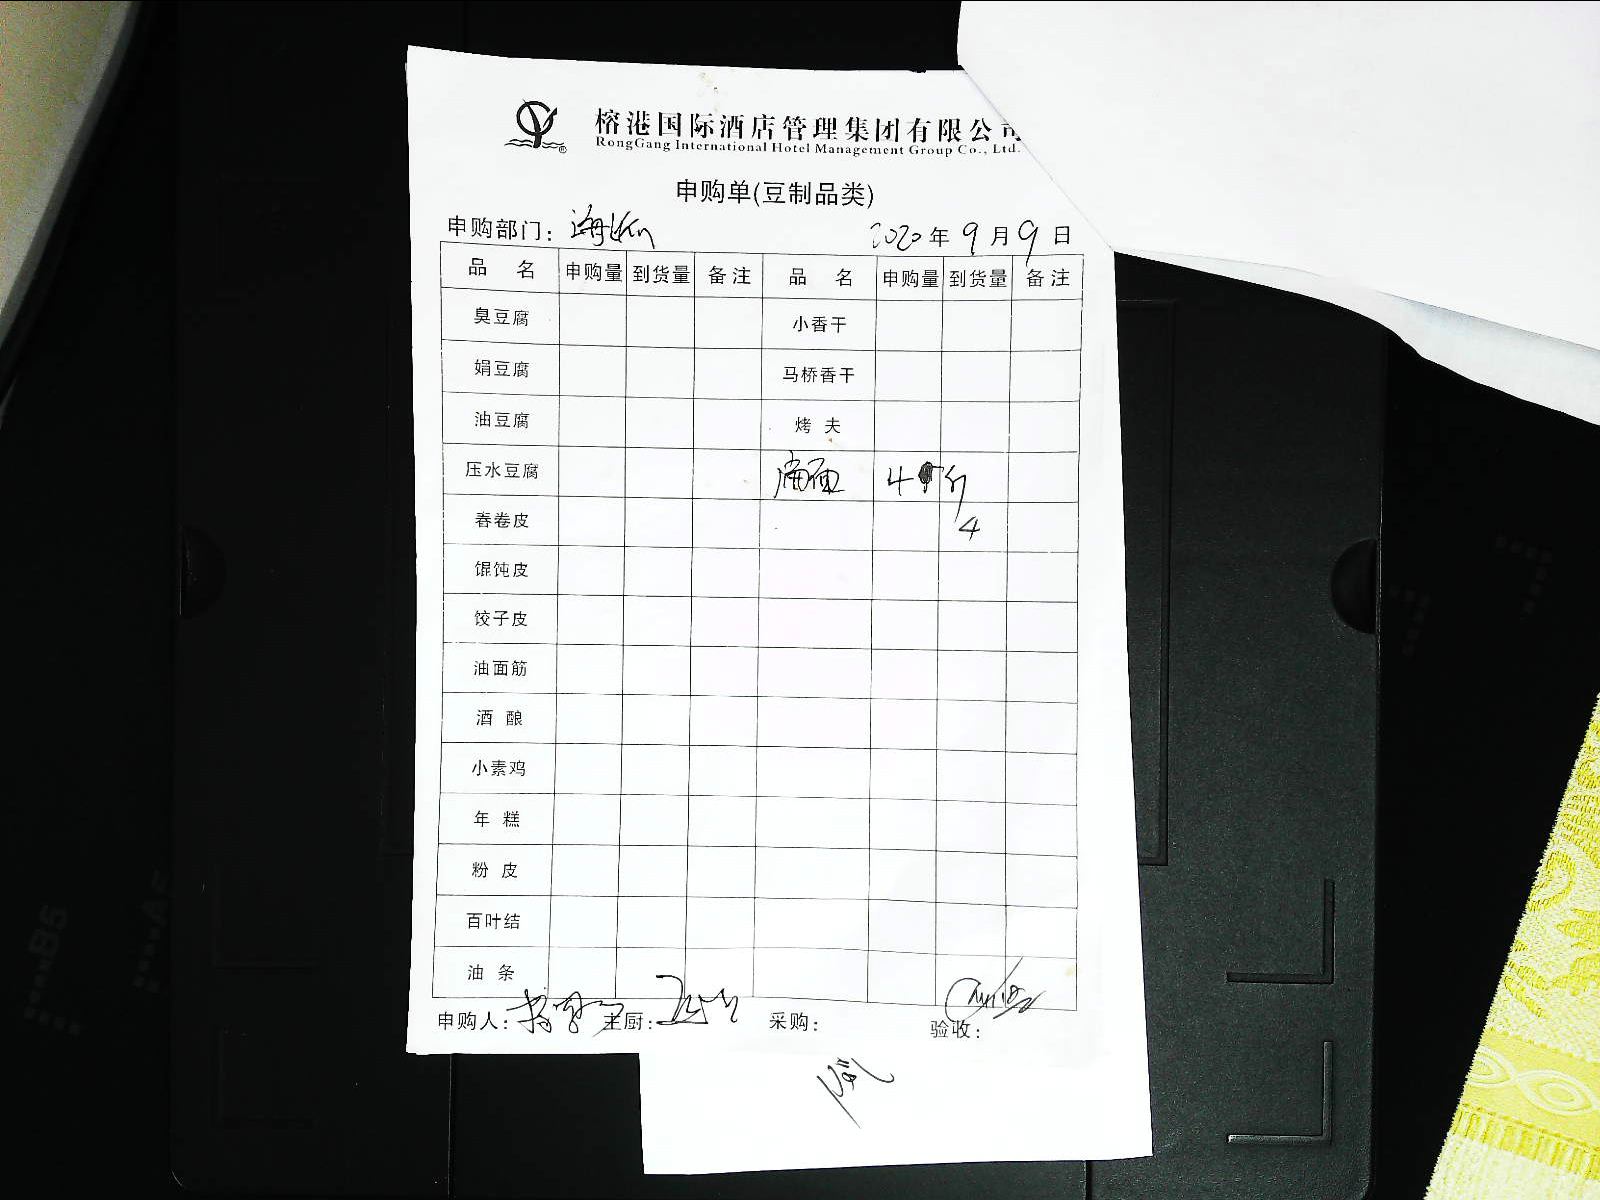 榕港国际酒店管理集团有限公司
RongGang International Hotel Management Group Co., Ltd.
申购单(豆制品类)
申购部门： 2020年9月9日
品 名 申购量 到货量 备注 品 名 申购量 到货量 备注
臭豆腐 小香干
娟豆腐 马桥香干
油豆腐 烤夫
压水豆腐 4 斤
春卷皮 4
馄饨皮
饺子皮
油面筋
酒酿
小素鸡
年糕
粉皮
百叶结
油条
申购人： 主厨： 采购： 验收：